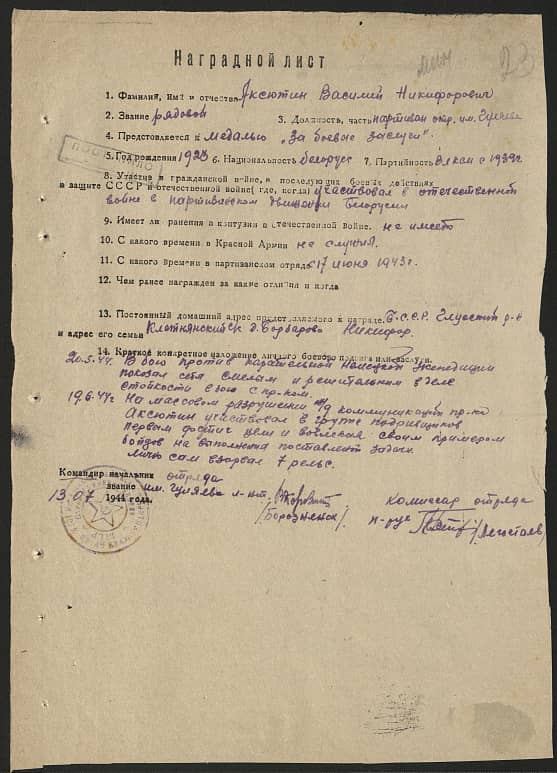 23
Наградной лист
1. Фамилия, имя и отчество Аксютин Василий Никифорович
2. Звание рядовой 3. Должность, часть партизан отр. им. Гуляева
4. Представляется к медалью „За боевые заслуги“.
5. Год рождения 1923 6. Национальность белорус 7. Партийность влксм с 1939г.
8. Участие в гражданской войне, в последующих боевых действиях
в защите СССР и отечественной войне (где, когда) участвовал в отечественной
войне в партизанском движении Белорусии
9. Имеет ли ранения и контузии в отечественной войне. не имеет
10. С какого времени в Красной Армии не служил.
11. С какого времени в партизанском отряде с 17 июня 1943 г.
12. Чем ранее награжден за какие отличия и когда
13. Постоянный домашний адрес представляемого к награде. Б.С.С.Р. Глусский р-н
и адрес его семьи д. Борбарово Никифор.
14. Краткое конкретное изложение личного боевого подвига или заслуги.
20.5.44г. В бою против карательной немецкой экспедиции
показал себя смелым и решительным в деле
стойкости в бою с пр-ком.
19.6.44г На массовом разрушении ж/д коммуникаций пр-ка
Аксютин действовал в группе подрывщиков
Первым достиг цели и своим примером
бойцов на выполнение поставлен. задачи.
Лично сам взорвал 7 рельс.
Командир начальник отряда
звание им. Гуляева л-нт.
13.07 1944 года.
комиссар отряда
п-рук